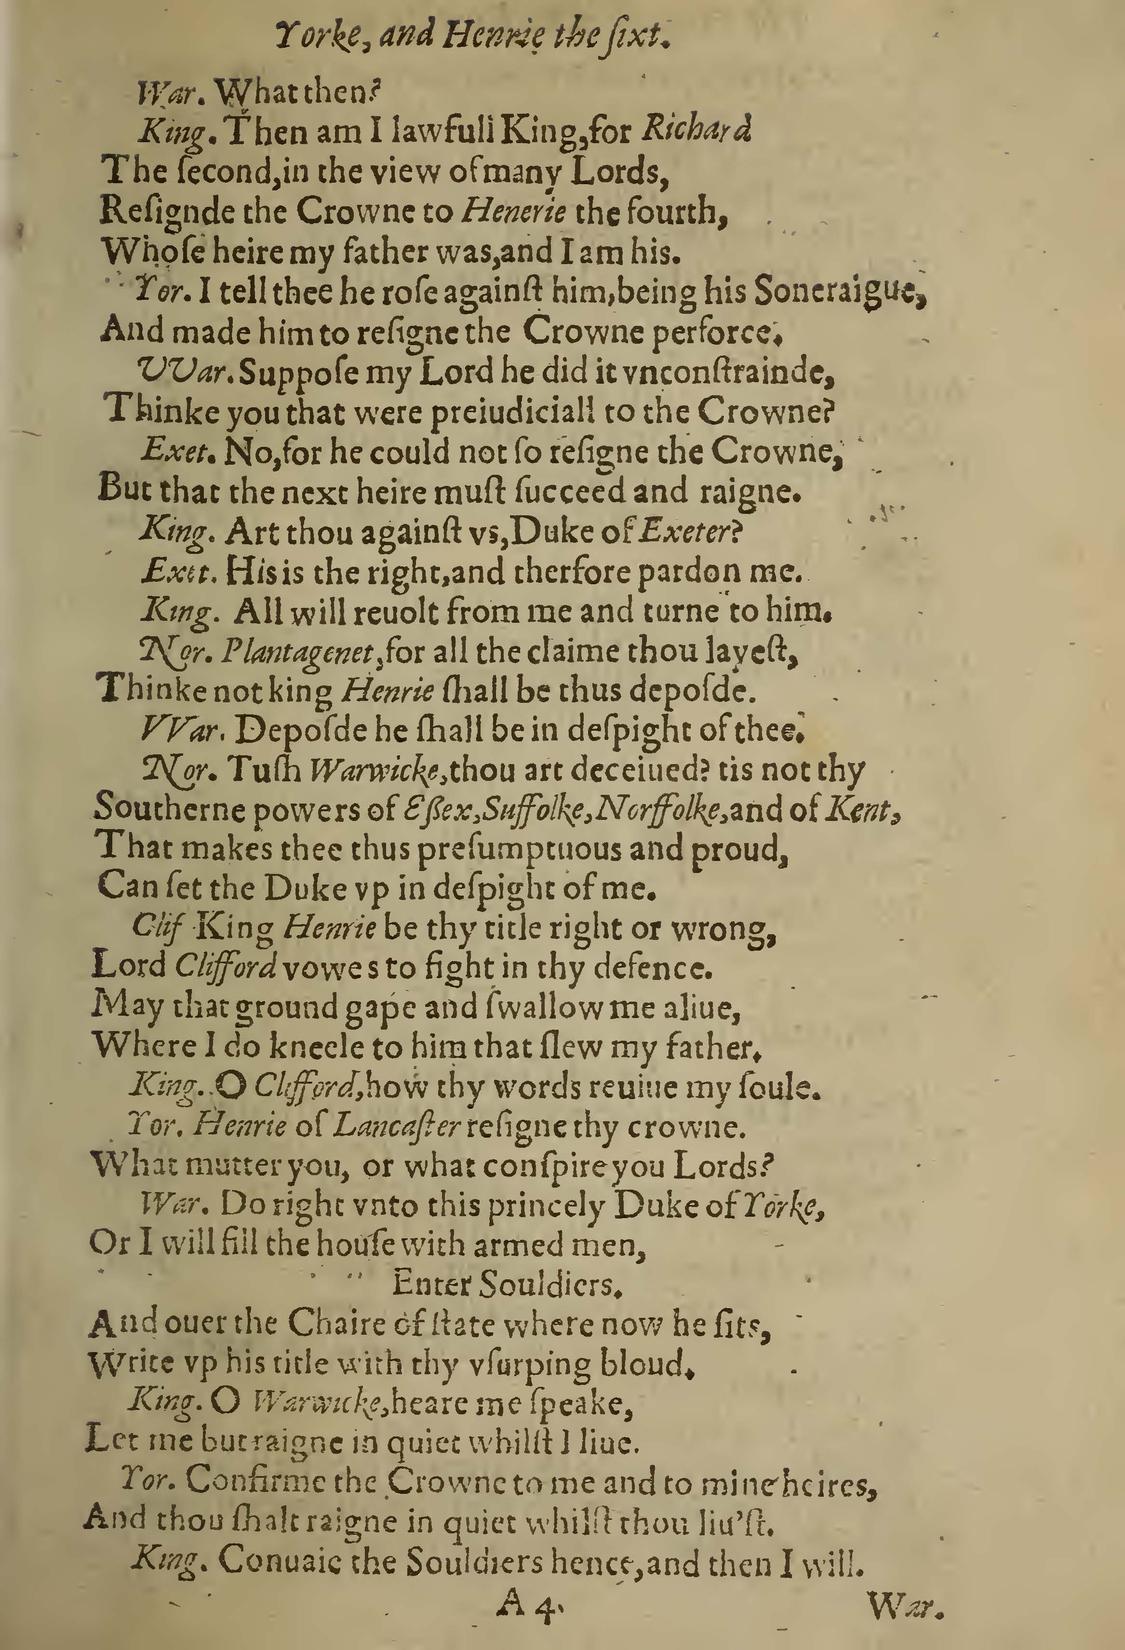 Yorke, and Henrie the ſixt.
War. What then?
King. Then am I lawfull King,for Richard
The ſecond,in the view of many Lords,
Reſignde the Crowne to Henerie the fourth,
Whoſe heire my father was,and I am his.
Yor. I tell thee he roſe againſt him,being his Soneraigue,
And made him to reſigne the Crowne perforce.
VVar. Suppoſe my Lord he did it vnconſtrainde,
Thinke you that were preiudiciall to the Crowne?
Exet. No,for he could not ſo reſigne the Crowne,
But that the next heire muſt ſucceed and raigne.
King. Art thou againſt vs,Duke of Exeter?
Exet. His is the right,and therfore pardon me.
King. All will reuolt from me and turne to him.
Nor. Plantagenet,for all the claime thou layeſt,
Thinke not king Henrie ſhall be thus depoſde.
VVar. Depoſde he ſhall be in deſpight of thee.
Nor. Tuſh Warwicke,thou art deceiued? tis not thy
Southerne powers of Eſſex,Suffolke,Norffolke,and of Kent,
That makes thee thus preſumptuous and proud,
Can ſet the Duke vp in deſpight of me.
Clif King Henrie be thy title right or wrong,
Lord Clifford vowes to fight in thy defence.
May that ground gape and ſwallow me aliue,
Where I do kneele to him that ſlew my father.
King. O Clifford,how thy words reuiue my ſoule.
Yor. Henrie of Lancaſter reſigne thy crowne.
What mutter you, or what conſpire you Lords?
War. Do right vnto this princely Duke of Yorke,
Or I will fill the houſe with armed men,
Enter Souldiers.
And ouer the Chaire of ſtate where now he ſits,
Write vp his title with thy vſurping bloud.
King. O Warwicke,heare me ſpeake,
Let me but raigne in quiet whilſt I liue.
Yor. Confirme the Crowne to me and to mine heires,
And thou ſhalt raigne in quiet whilſt thou liu'ſt.
King. Conuaie the Souldiers hence,and then I will.
A 4.
War.